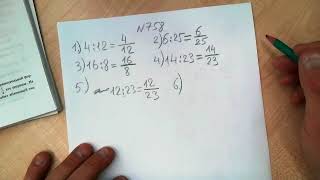 N758
1) 4:12 = 4/12 2) 6:25 = 6/25
3) 16:8 = 16/8 4) 14:23 = 14/23
5) 12:23 = 12/23 6)